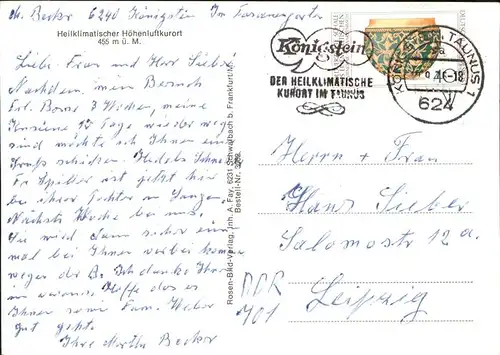 M. Becker 6240 Königstein Im Fasanengarten
Heilklimatischer Höhenluftkurort
455 m ü. M.
Liebe Frau und Herr Sieber!
Nachdem mein Besuch
Frl. 3 Wochen, meine
12 Tage wieder weg
sind möchte ich Ihnen einen
Gruß schicken.
Fr Spitter ist jetzt hier
bei ihrer Tochter in Langen.
Nächste Woche bei uns.
Sie wird dann sicher ein
mal bei Ihnen vorbei kommen
wegen der B. Ich danke Ihnen
im voraus. Hoffe das es
Ihnen sowie Fam. Weber
gut geht.
Ihre Martha Becker
Rosen-Bild-Verlag, Inh. A. Fay, 6231 Schwalbach b. Frankfurt/M.
Bestell-Nr.
Königstein
DER HEILKLIMATISCHE
KURORT IM TAUNUS
KÖNIGSTEIN, TAUNUS 1
-18
624
Herrn + Frau
Hans Sieber
Salomostr 12a.
DDR
701
Leipzig